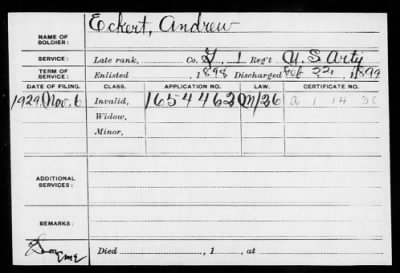 NAME OF SOLDIER: Eckert, Andrew
SERVICE: Late rank, Co. L. 1 Reg't U.S. Arty
TERM OF SERVICE: Enlisted , 1898 Discharged Oct 22, 1899
DATE OF FILING. CLASS. APPLICATION NO. LAW. CERTIFICATE NO.
1929 Nov. 6 Invalid, 1654462 A 1 14
Widow,
Minor,
ADDITIONAL SERVICES:
REMARKS:
Died , 1 , at